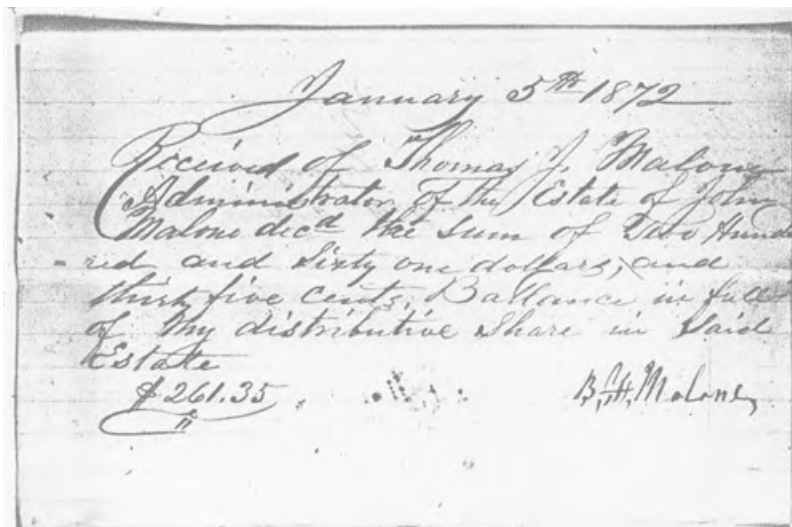 January 5th 1872
Received of Thomas J. Malone
Administrator of the Estate of John
Malone decd the sum of Two Hund
- red and Sixty one dollars, and
thirty five cents, Ballance in full
of my distributive Share in Said
Estate
$261.35
B. H. Malone